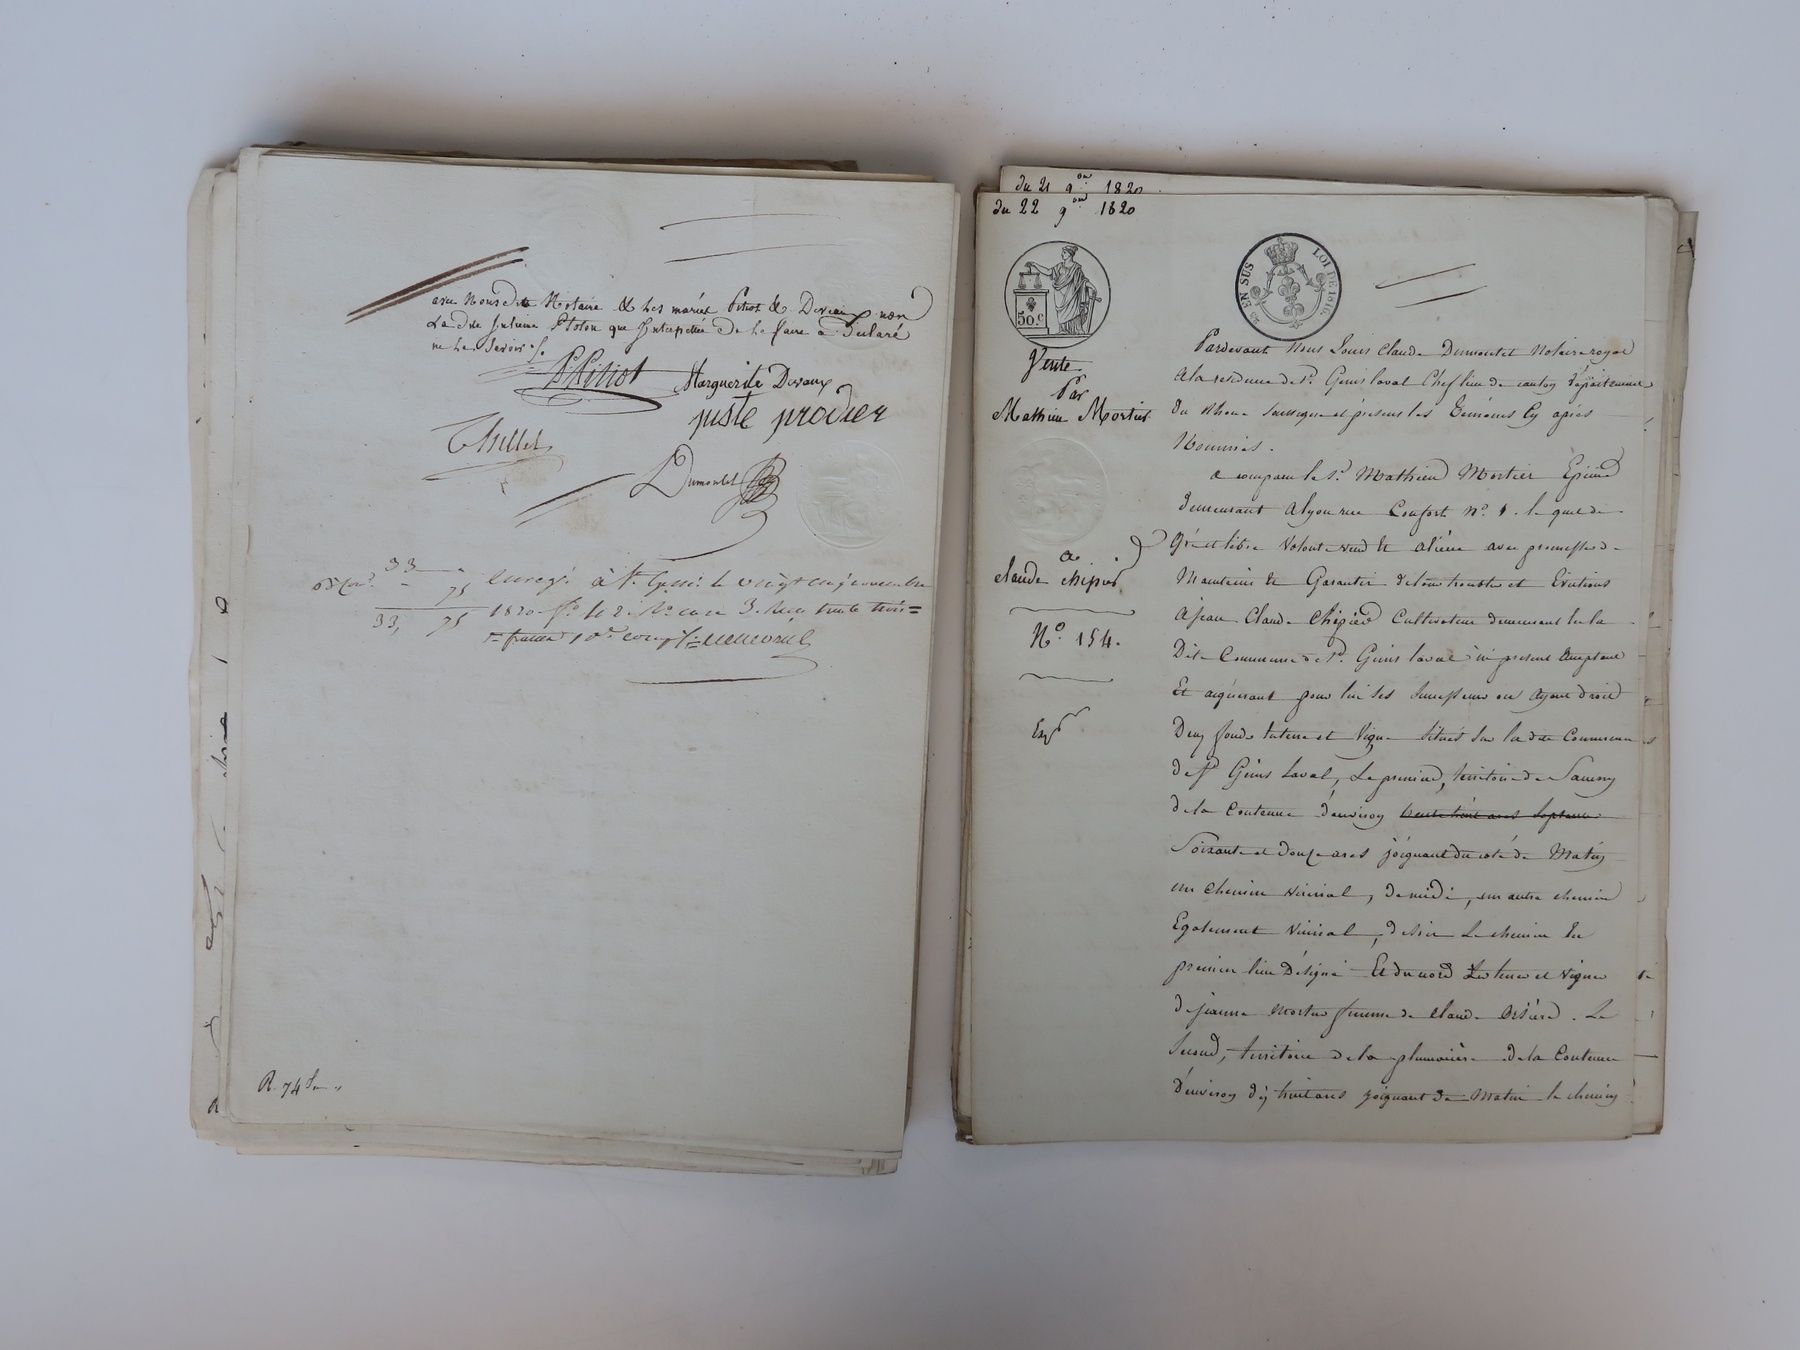 avec Nous dit Notaire & les mariés Pitiot & Devaux non
La dite Julienne que Interpellée de le faire a déclaré
ne le savoir /.
PPitiot Marguerite Devaux
juste prodier
Thillet
Dumontet
33 "
" 75
33, 75
enreg. à St. Genis le vingt cinq novembre
1820 fo. 102 Vo. case 3. Reçu trente trois
francs 10e. compris
R. 74
du 21 9bre 1820
du 22 9bre 1820
50 c
EN SUS
LOI DE 1816.
Vente
Par
Mathieu Mortier
a
Claude chipier
No. 154.
Exp
Pardevant Nous Louis Claude Dumontet Notaire royal
A la residence de St. Genis laval Chef lieu de canton département
du Rhone soussigné et présens les Témoins Cy après
Nommés.
a comparu le Sr. Mathieu Mortier Epicier
demeurant a lyon rue Confort No. 1. le quel de
Gré et libre volonté vend et aliène avec promesse de
Maintenir & Garantir de tous troubles et Evictions
A jean Claude Chipier Cultivateur demeurant en la
Dite Commune de St. Genis laval ici présent acceptant
Et aquérant pour lui ses successeurs ou ayant droit
Deux fonds en terre et Vigne situés sur la dite Commune
de St Genis Laval, Le premier, territoire de
de la Contenue d'environ
Soixante et douze ares joignant du coté de Matin
un chemin vicinal, de midi, un autre chemin
Egalement vicinal, de soir Le chemin En
premier lieu Désigné Et du nord Les terre et vigne
de jeanne Mortier femme de Claude. Le
second, territoire de la plumassière de la Contenue
D'environ dix huit ares joignant de Matin le chemin